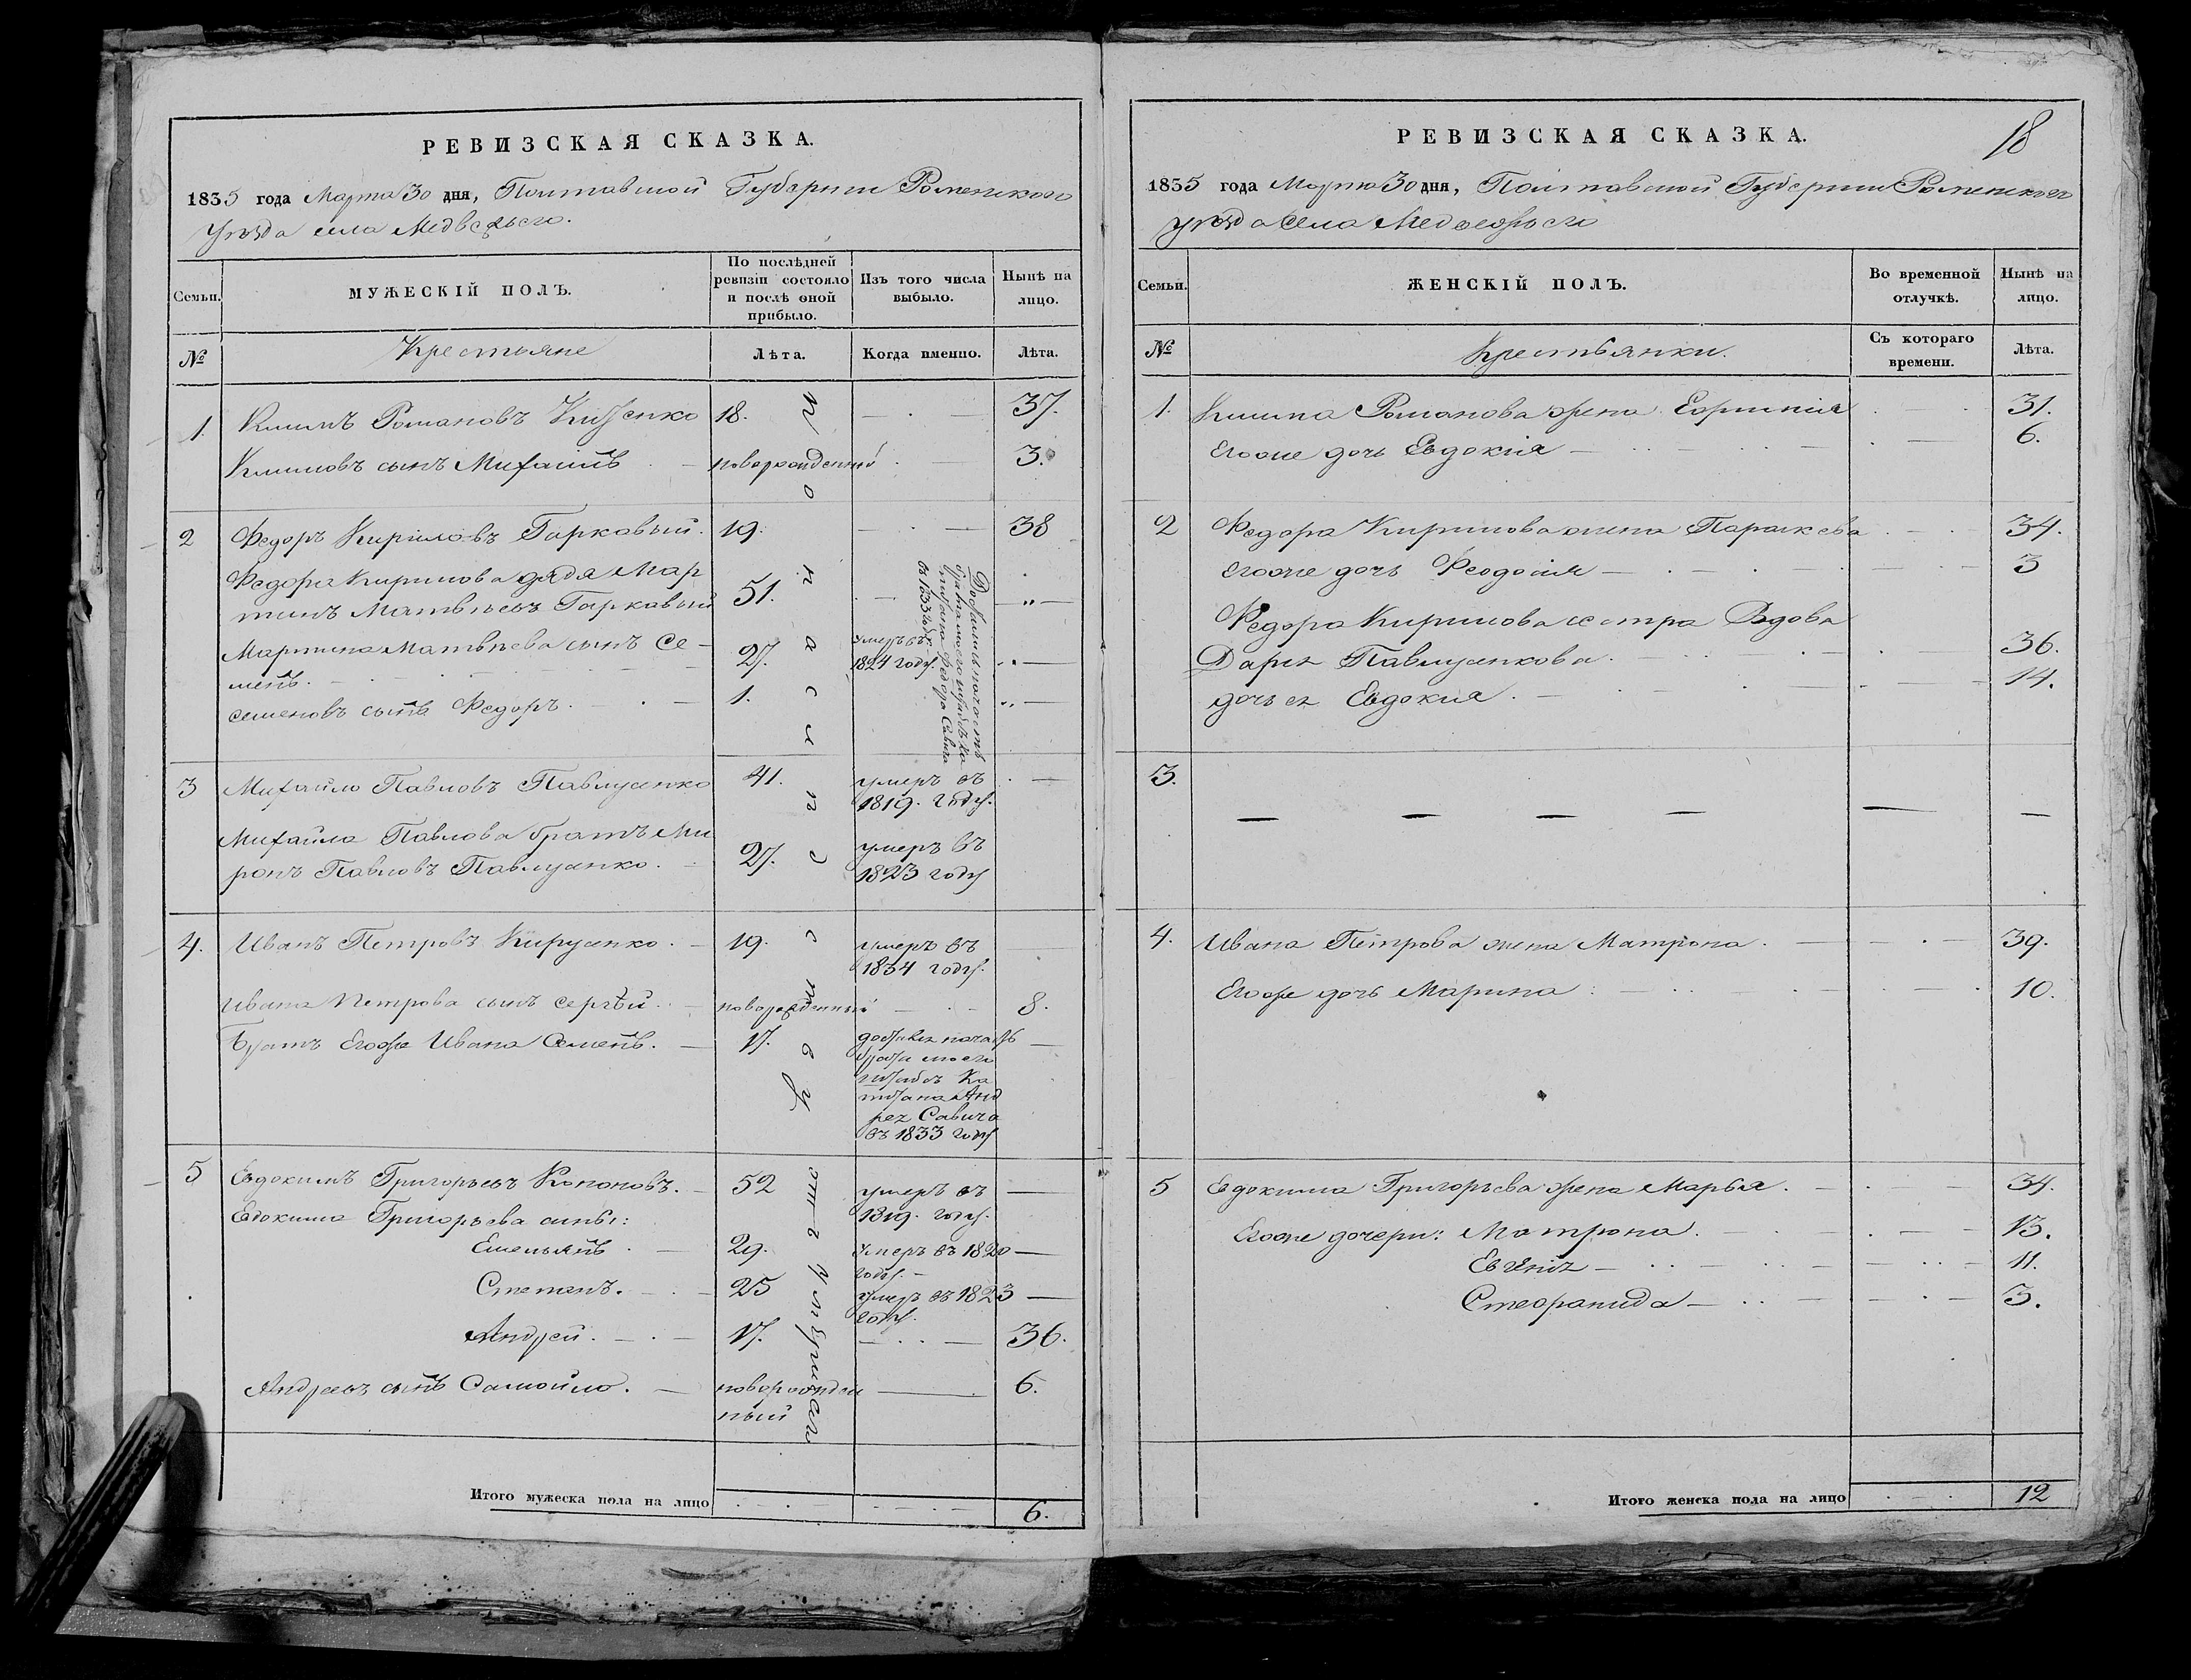 РЕВИЗСКАЯ СКАЗКА.
1835 года Марта 30 дня, Полтавской Губернии Роменского
Уѣзда села Медвежьего.
Семьи.
МУЖЕСКІЙ ПОЛЪ.
По послѣдней
ревизіи состояло
и послѣ оной
прибыло.
Изъ того числа
выбыло.
Нынѣ на
лицо.
№
Крестьяне
Лѣта.
Когда именно.
Лѣта.
1. Климъ Романовъ 18. — · — 37.
Климовъ сынъ Михайлъ новорожденный — 3.
2 Федоръ Кириловъ Гаркавый. 19. — · — 38
Федора Кирилова дядя Мар
тинъ Матвѣевъ Гаркавый 51. — „ —
Мартина Матвѣева сынъ Се- 27. умеръ въ
менъ. 1824 году. „ —
Семеновъ сынъ Федоръ. 1. „ —
Достались по
брата моего штабсъ Ка
питана Федора Савича
въ 1833
3 Михайло Павловъ Павлученко 41. умеръ въ
1819. году.
Михайла Павлова братъ Ми
ронъ Павловъ Павлученко. 27. умеръ въ
1823 году
4. Иванъ Петровъ Кирученко. 19. умеръ въ —
1834 году.
Ивана Петрова сынъ Сергѣй. новорожденный — 8.
Братъ Егоже Ивана Семенъ. 17.
брата моего
штабсъ Ка
питана Анд
рея Савича
въ 1833 году
5 Евдокимъ Григорьевъ Кононовъ. 52 умеръ въ —
1819. году.
Евдокима Григорьева сыны:
Емельянъ 29. умеръ въ 1820 —
году. —
Степанъ. 25 умеръ въ 1823 —
году.
Андрей. 17. — 36.
Андреевъ сынъ Самойло. новорожден — 6.
ный
Итого мужеска пола на лицо 6.
18
РЕВИЗСКАЯ СКАЗКА.
1835 года Марта 30 дня, Полтавской Губернии Роменского
уѣзда Села Медвежьего
Семьи.
ЖЕНСКІЙ ПОЛЪ.
Во временной
отлучкѣ.
Нынѣ на
лицо.
№
Крестьянки.
Съ котораго
времени.
Лѣта.
1. Клима Романова жена 31.
Егоже дочь Евдокія — 6.
2 Федора Кирилова жена Параскева 34.
Егоже дочь Феодосія — 3
Федора Кирилова сестра Вдова
Дарья Павлученкова. 36.
дочь ея Евдокия. — 14.
3. — — — — — —
4. Ивана Петрова жена Матрона. — 39.
Егоже дочь Марина 10.
5 Евдокима Григорьева жена Марья. 34.
Егоже дочери: Матрона. 13.
Евгенія — 11.
Стефанида — 3.
Итого женска пола на лицо 12